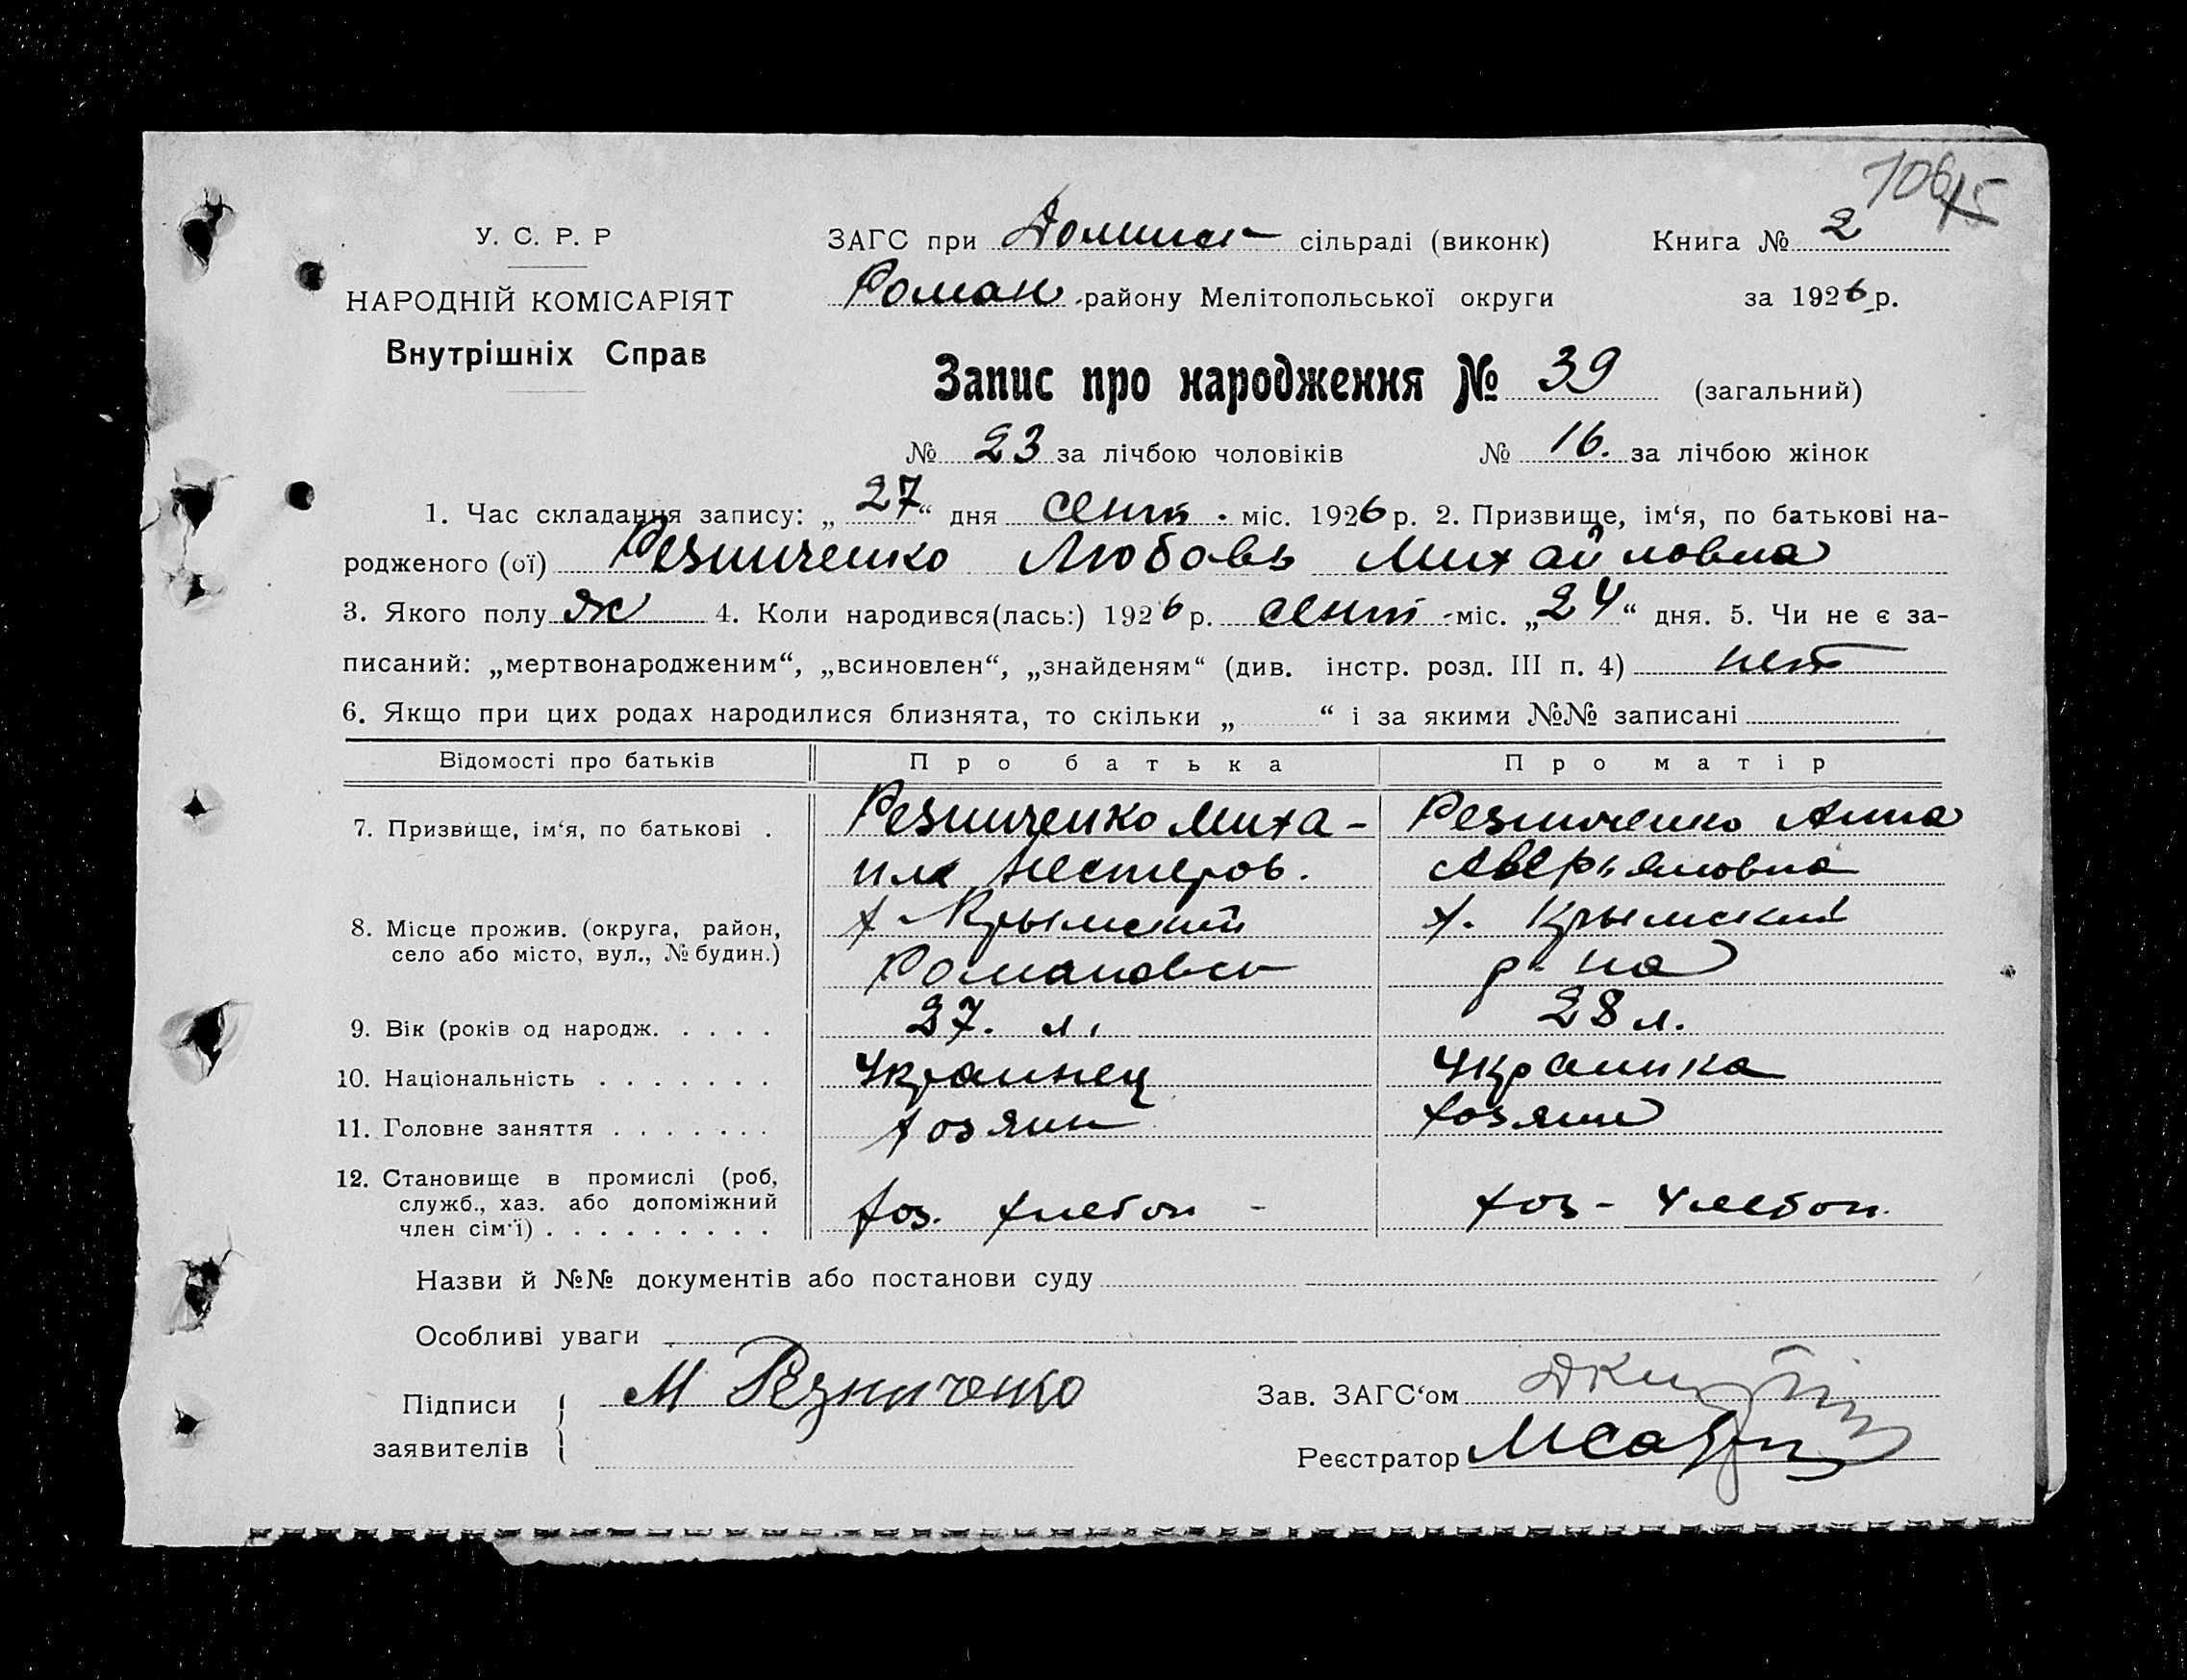 106
У. С. Р. Р
ЗАГС при сільраді (виконк) Книга № 2
НАРОДНІЙ КОМІСАРІЯТ
Роман району Мелітопольської округи за 1926 р.
Внутрішніх Справ
Запис про народження № 39 (загальний)
№ 23 за лічбою чоловіків № 16. за лічбою жінок
1. Час складання запису: „27“ дня сент. міс. 1926 р. 2. Призвище, ім‘я, по батькові на-
родженого (ої) Резниченко Любовь Михайловна
3. Якого полу ж 4. Коли народився(лась:) 1926 р. сент міс. „24“ дня. 5. Чи не є за-
писаний: „мертвонародженим“, „всиновлен“, „знайденям“ (див. інстр. розд. III п. 4) нет
6. Якщо при цих родах народилися близнята, то скільки „ “ і за якими №№ записані
Відомості про батьків Про батька Про матір
7. Призвище, ім‘я, по батькові . Резниченко Миха- Резниченко Анна
ил Нестеров. Аверьяновна
8. Місце прожив. (округа, район, х. Крымский х. Крымский
село або місто, вул., № будин.) Романовск р-на
9. Вік (років од народж. . . . . 37. л. 28 л.
10. Національність . . . . . . . Украинец Украинка
11. Головне заняття . . . . . . . хозяин хозяин
12. Становище в промислі (роб,
служб., хаз. або допоміжний хоз. хлебоп - хоз - члебоп.
член сім‘ї) . . . . . . . . .
Назви й №№ документів або постанови суду
Особливі уваги
Підписи М Резниченко Зав. ЗАГС‘ом
заявителів Реєстратор